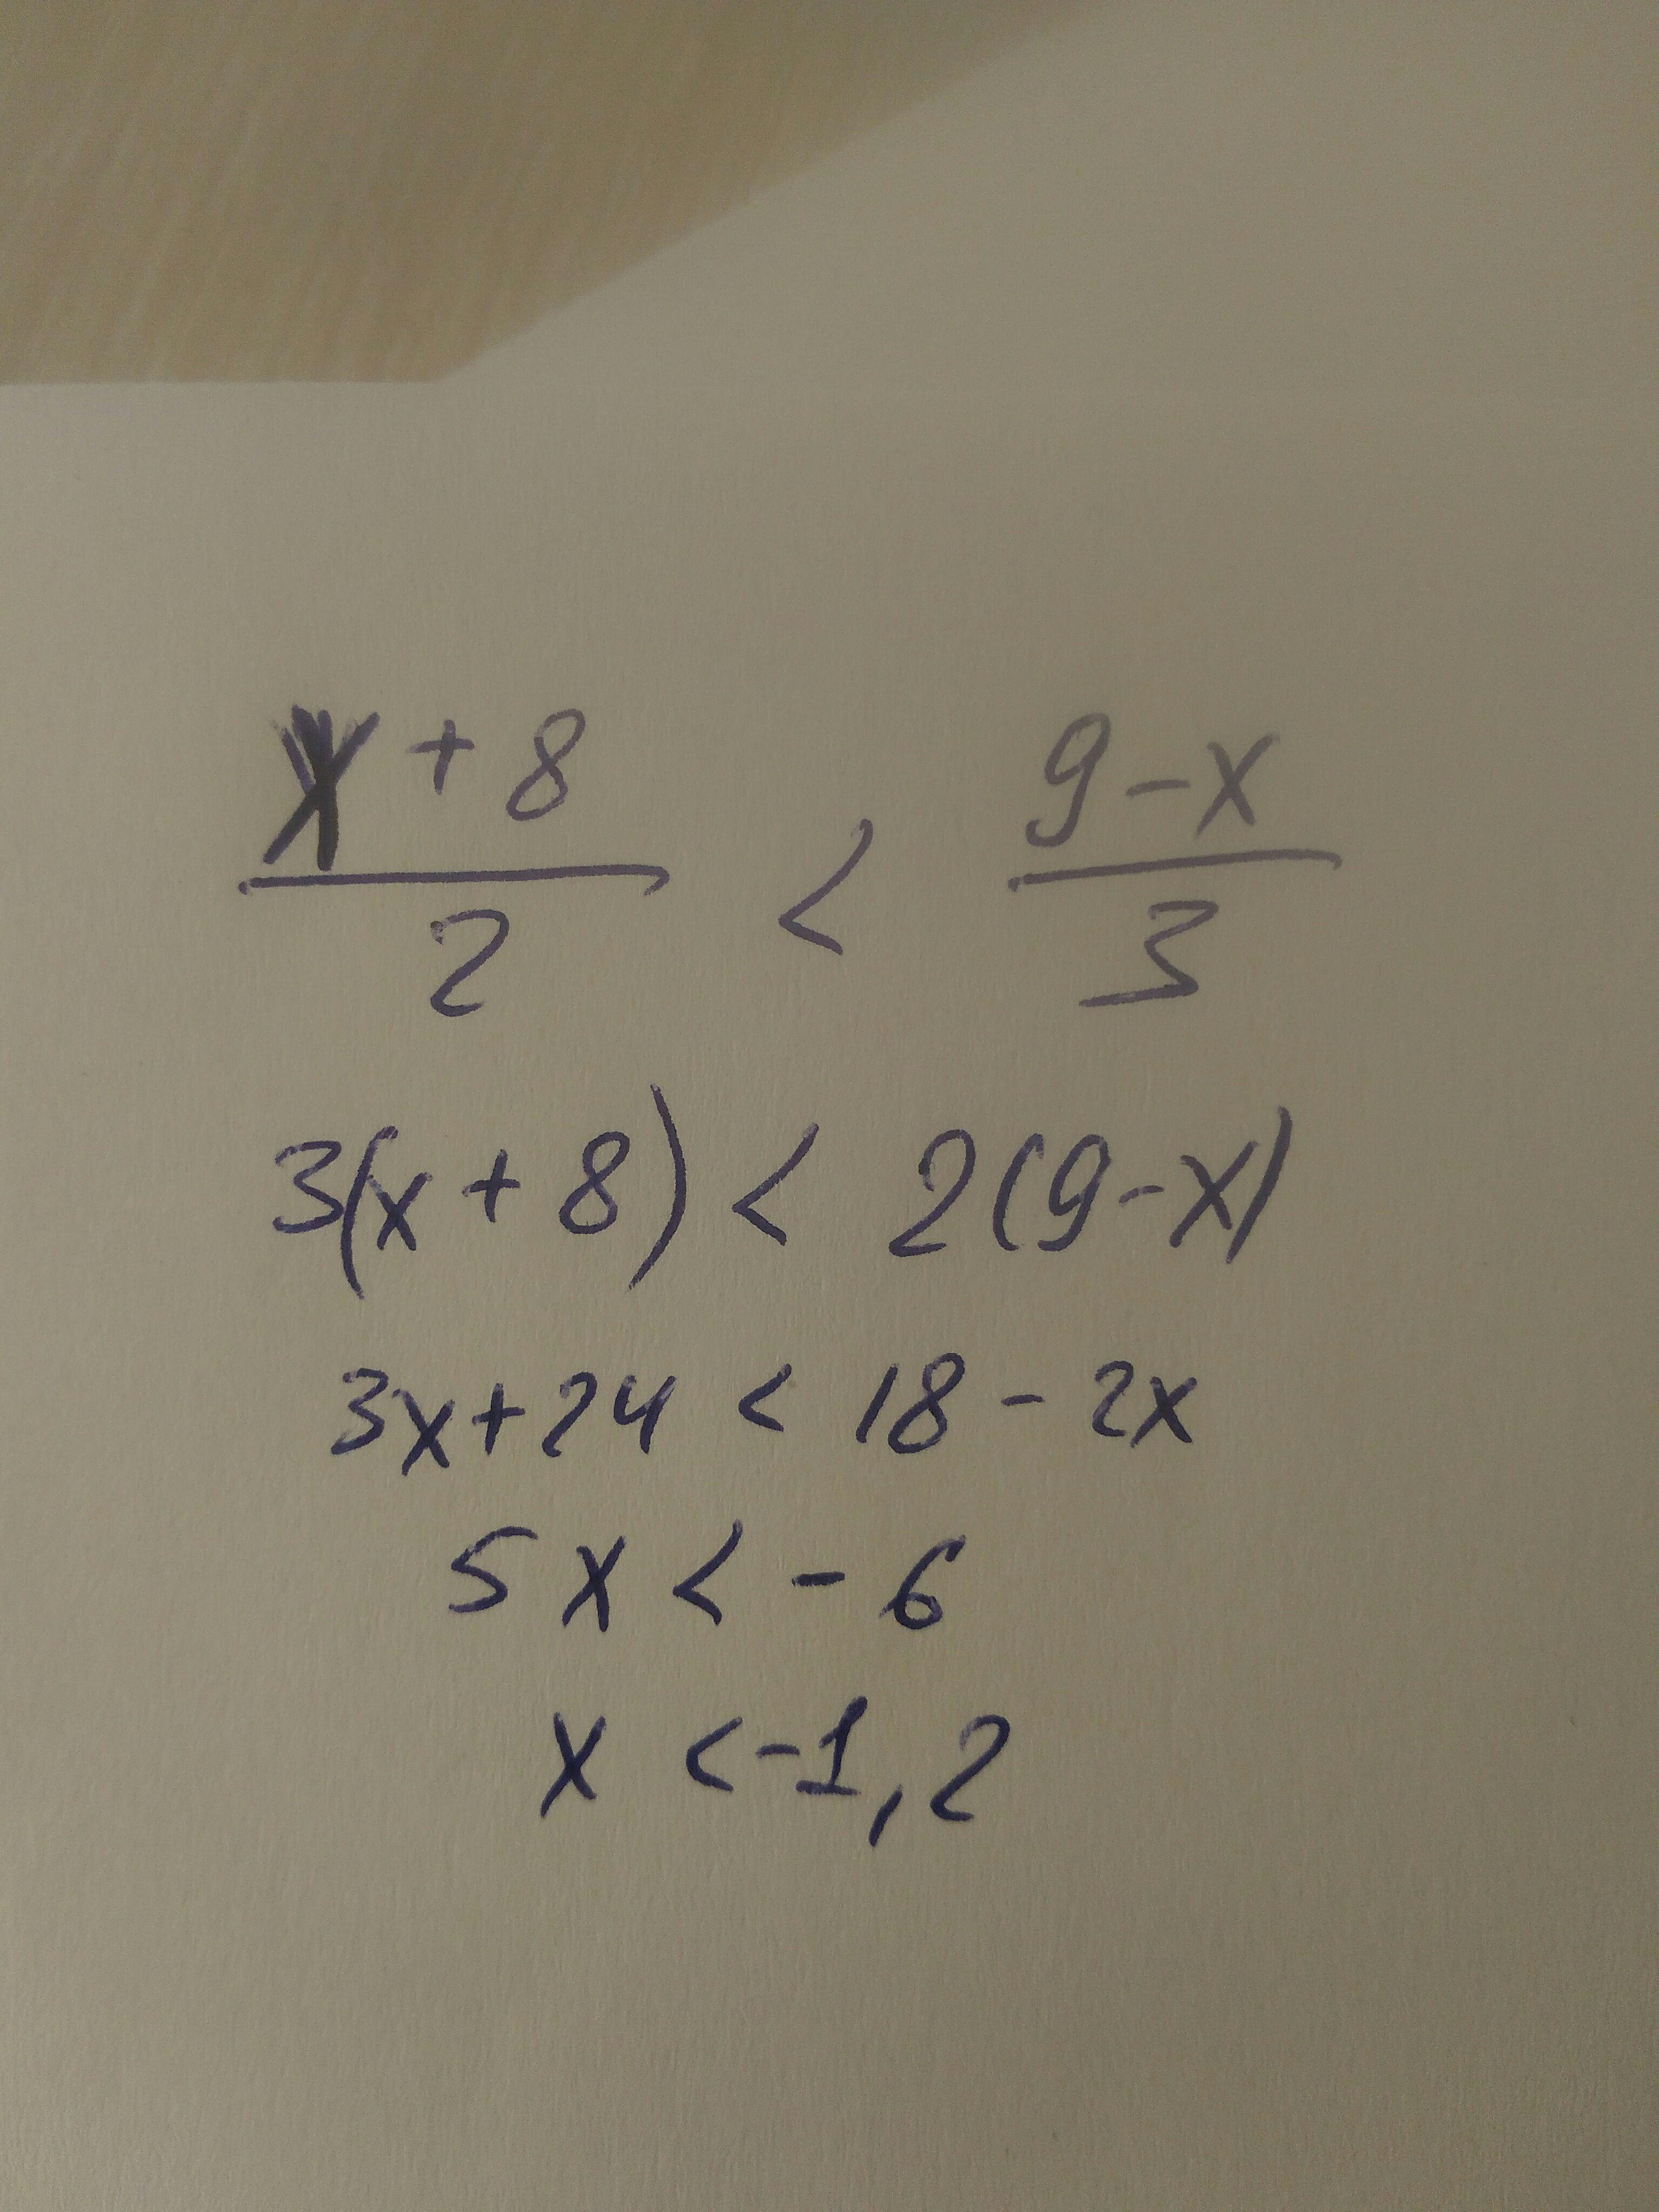 x + 8 / 2 < 9 - x / 3
3(x + 8) < 2(9 - x)
3x + 24 < 18 - 2x
5x < - 6
x < -1,2